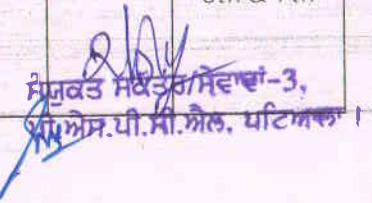 ਸੰਯੁਕਤ ਸਕੱਤਰ/ਸੇਵਾਵਾਂ-3,
ਪੀ.ਐਸ.ਪੀ.ਸੀ.ਐਲ. ਪਟਿਆਲਾ।